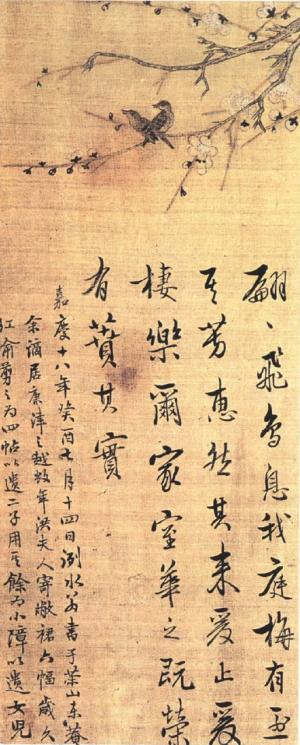 翩〻飛鳥息我庭梅有烈
其芳惠然其來爰止爰
棲樂爾家室華之旣榮
有蕡其實
嘉慶十八年癸酉七月十四日洌水翁書于茶山東菴
余謫居康津之越數年洪夫人寄敝裙六幅歲久
紅渝剪之爲四帖以遺二子用其餘爲小障以遺女兒